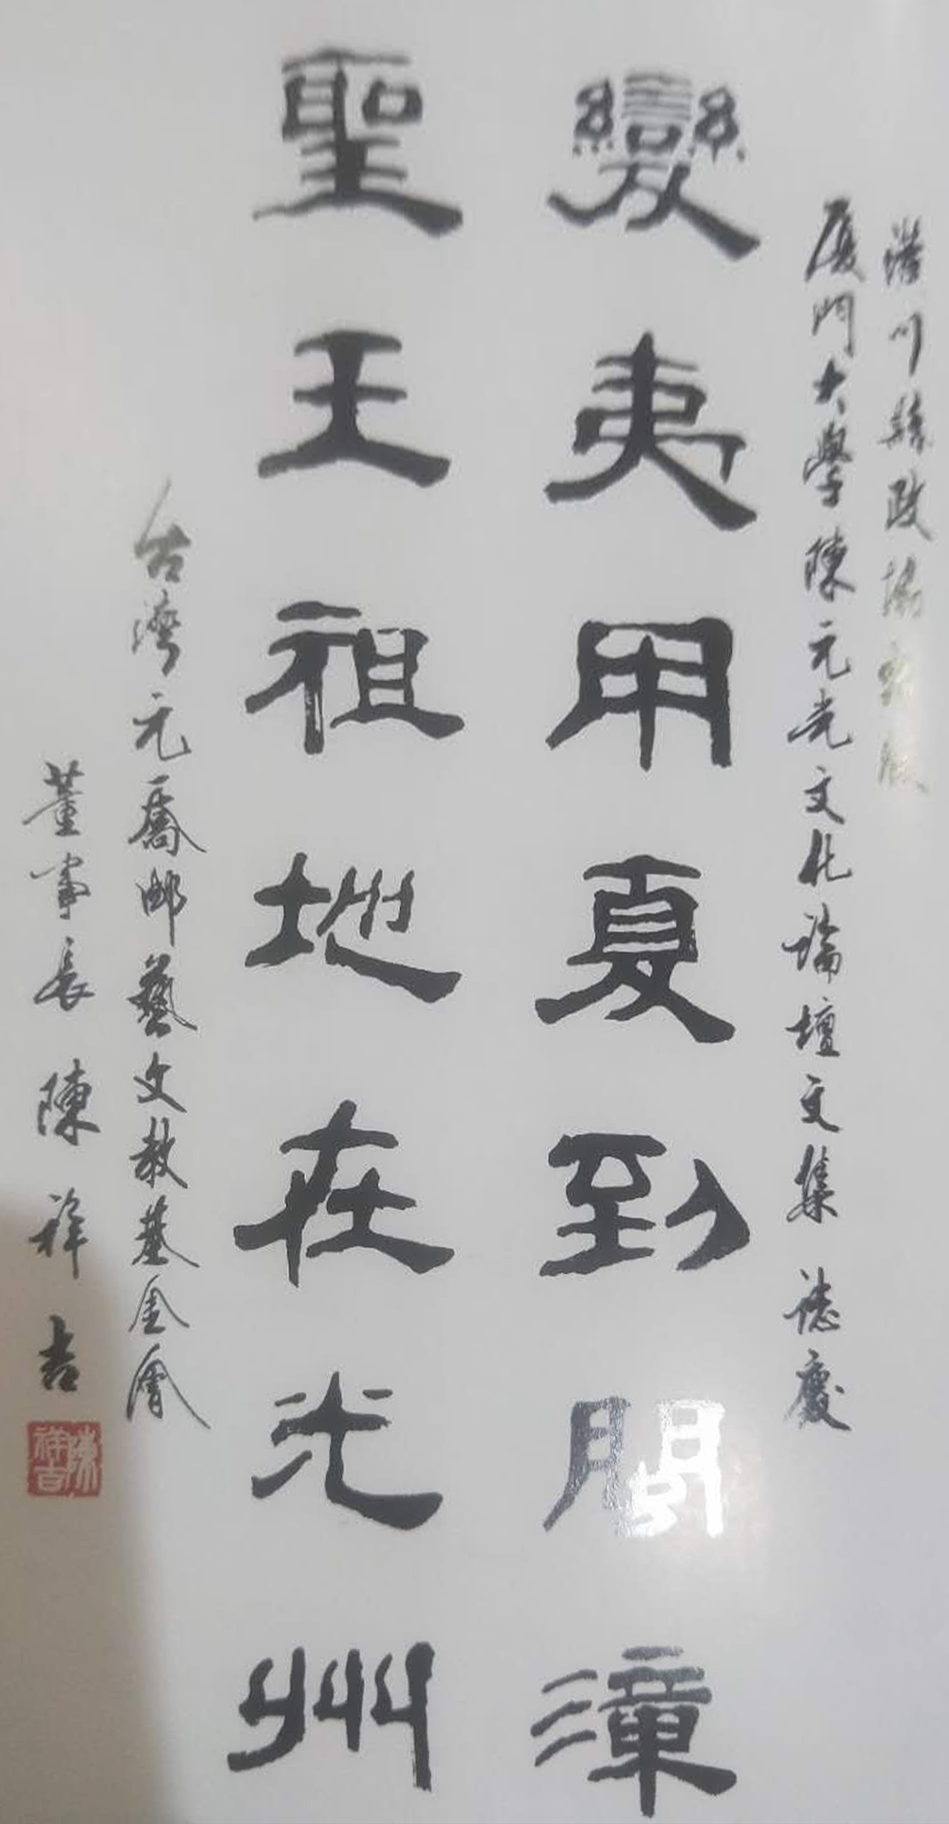 潢川縣政協
廈門大學陳元光文化論壇文集 誌慶
變夷用夏到閩漳
聖王祖地在光州
台灣元喬邮藝文教基金會
董事長 陳祥吉
陳祥吉